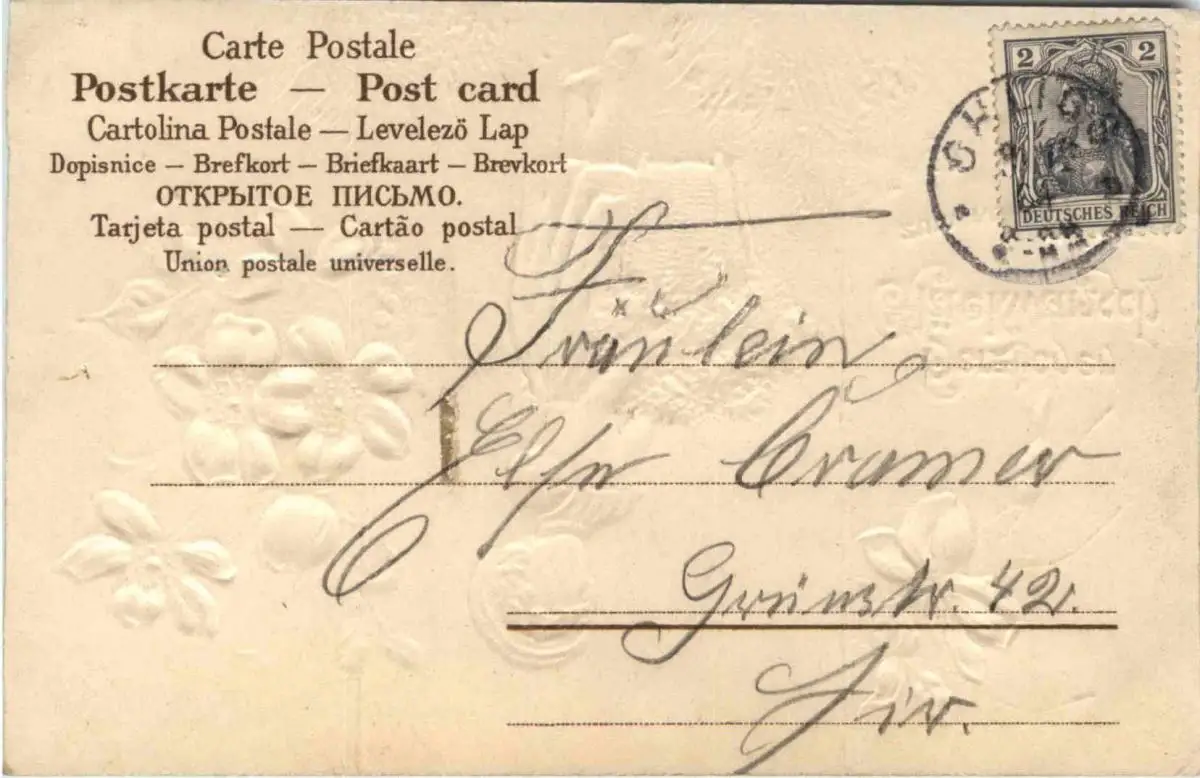 Carte Postale
Postkarte — Post card
Cartolina Postale — Levelezö Lap
Dopisnice — Brefkort — Briefkaart — Brevkort
ОТКРЫТОЕ ПИСЬМО.
Tarjeta postal — Cartão postal
Union postale universelle.
2 2
DEUTSCHES REICH
Fräulein
Cramer
Grünstr. 42.